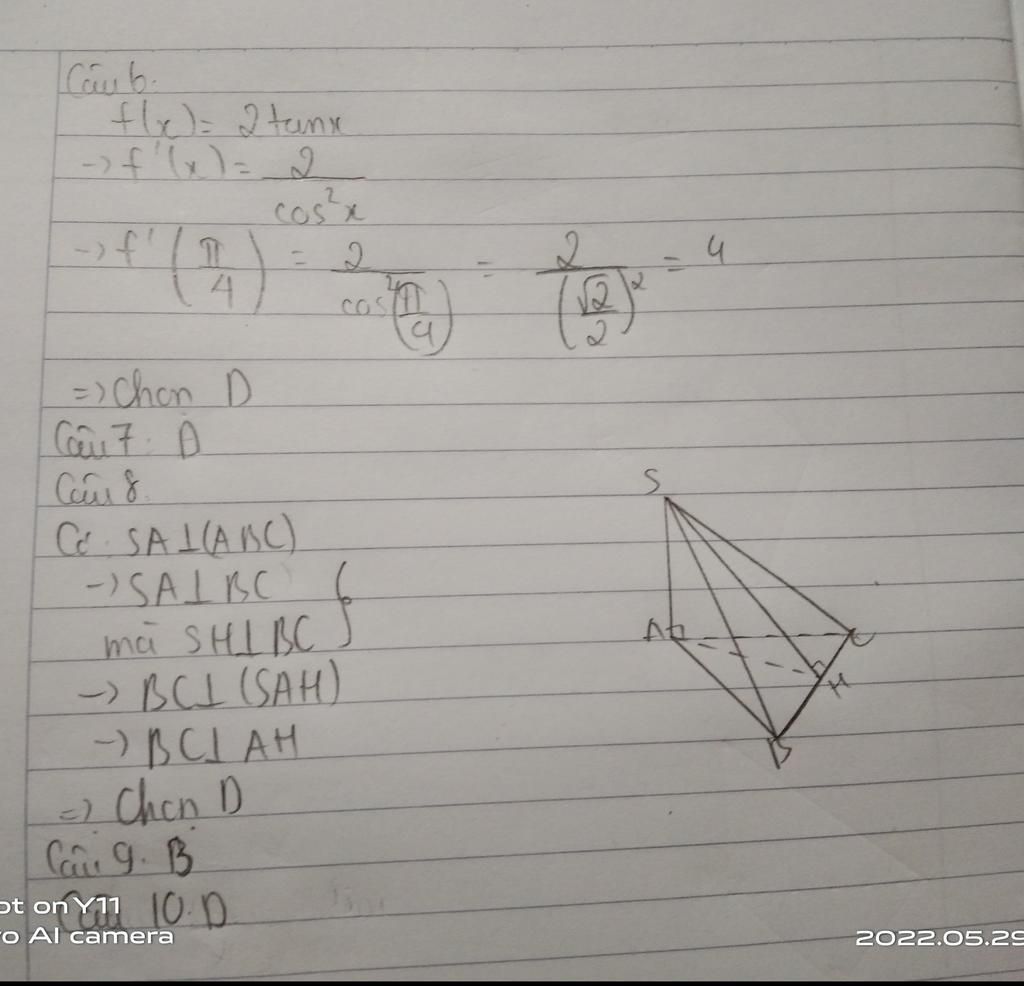 Câu 6.
f(x) = 2tanx
-> f'(x) = 2/cos²x
-> f'(π/4) = 2/cos²(π/4) = 2/(√2/2)² = 4
=> Chọn D
Câu 7. D
Câu 8.
Có: SA⊥(ABC)
-> SA⊥BC }
mà SH⊥BC
-> BC⊥(SAH)
-> BC⊥AH
=> Chọn D
Câu 9. B
Câu 10. D
S
A
C
H
B
ot on Y11
o AI camera
2022.05.29